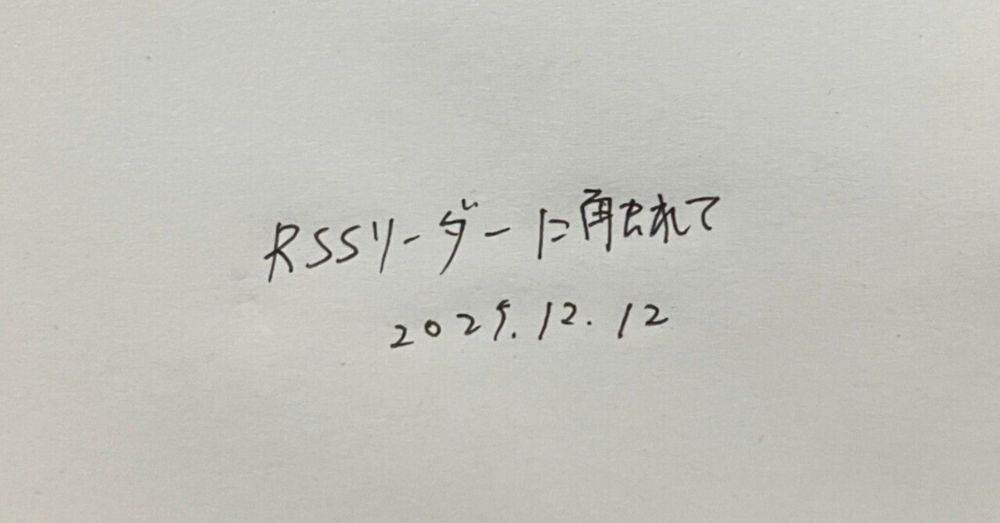 RSSリーダーに触れて
2025.12.12